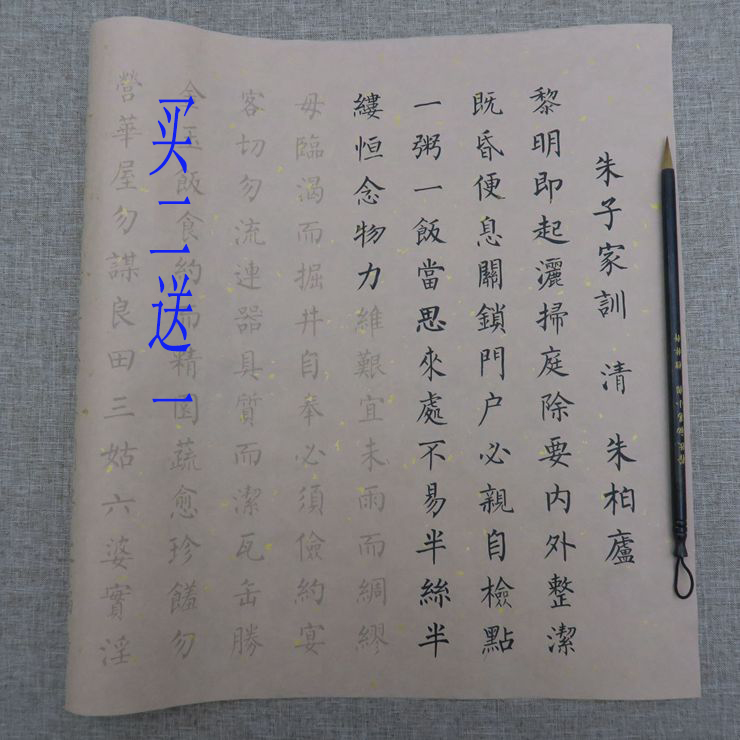 朱子家訓 清 朱柏廬
黎明即起灑掃庭除要内外整潔
既昏便息關鎖門户必親自檢點
一粥一飯當思來處不易半絲半
縷恒念物力維艱宜未雨而綢繆
毋臨渴而掘井自奉必須儉約宴
客切勿流連器具質而潔瓦缶勝
金玉飯食約而精園蔬愈珍饈勿
營華屋勿謀良田三姑六婆實淫
买二送一